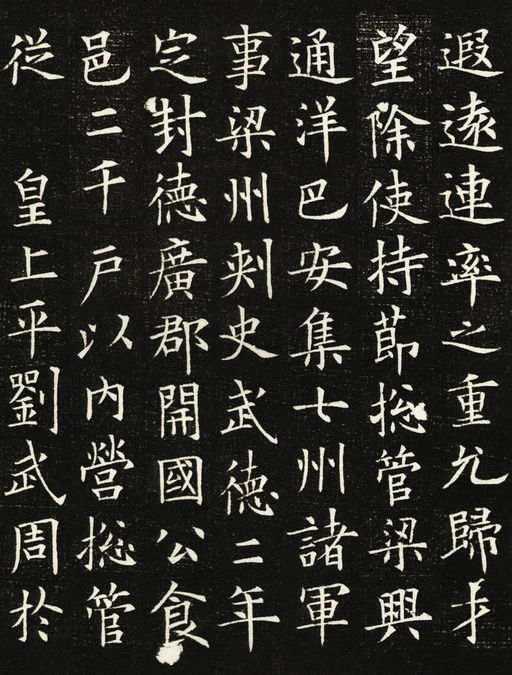 遐遠連率之重允歸才
望除使持節揔管梁興
通洋巴安集七州諸軍
事梁州刾史武德二年
定封德廣郡開國公食
邑二千戶以内營揔管
從皇上平劉武周於